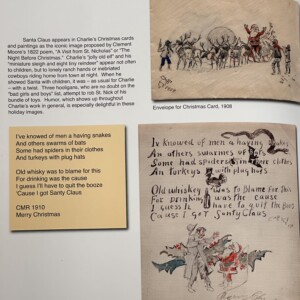 Santa Claus appears in Charlie's Christmas cards
and paintings as the iconic image proposed by Clement
Moore's 1822 poem, "A Visit from St. Nicholas" or "The
Night Before Christmas." Charlie's "jolly old elf" and his
"miniature sleigh and eight tiny reindeer" appear not often
to children, but to lonely ranch hands or inebriated
cowboys riding home from town at night. When he
showed Santa with children, it was – as usual for Charlie
– with a twist. Three hooligans, who are no doubt on the
"bad girls and boys" list, attempt to rob St. Nick of his
bundle of toys. Humor, which shows up throughout
Charlie's work in general, is especially delightful in these
holiday images.
Envelope for Christmas Card, 1906
I've knowed of men a having snakes
And others swarms of bats
Some had spiders in their clothes
And turkeys with plug hats
Old whisky was to blame for this
For drinking was the cause
I guess I'll have to quit the booze
'Cause I got Santy Claus
CMR 1910
Merry Christmas
Iv knowed of men a having snakes
An others swarmes of bats
Some had spiders in their clothes
An turkeys with plug hats
Old whiskey was to blame for this
For drinking was the cause
I guess Il have to quit the booz
Cause I got Santy Claus